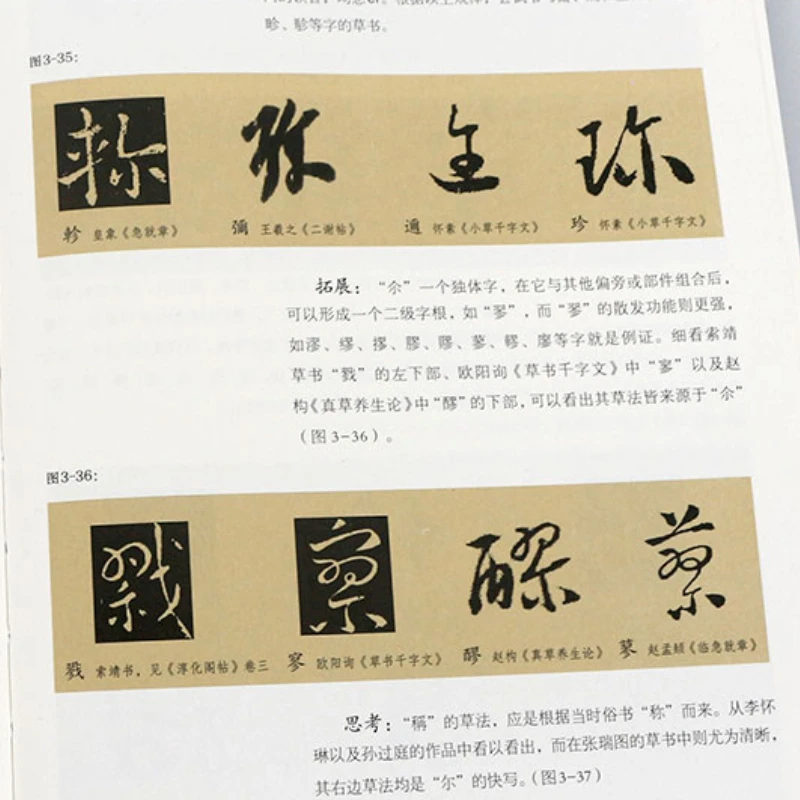 畛、髟等字的草书。
图3-35:
軫 皇象《急就章》 彌 王羲之《二谢帖》 邇 怀素《小草千字文》 珍 怀素《小草千字文》
拓展：“尒”一个独体字，在它与其他偏旁或部件组合后，
可以形成一个二级字根，如“翏”，而“翏”的散发功能则更强，
如漻、缪、摎、膠、賿、蓼、轇、廖等字就是例证。细看索靖
草书“戮”的左下部、欧阳询《草书千字文》中“寥”以及赵
构《真草养生论》中“醪”的下部，可以看出其草法皆来源于“尒”
（图3-36）。
图3-36:
戮 索靖书，见《淳化阁帖》卷三 寥 欧阳询《草书千字文》 醪 赵构《真草养生论》 蓼 赵孟頫《临急就章》
思考：“稱”的草法，应是根据当时俗书“称”而来。从李怀
琳以及孙过庭的作品中看以看出，而在张瑞图的草书中则尤为清晰，
其右边草法均是“尔”的快写。（图3-37）